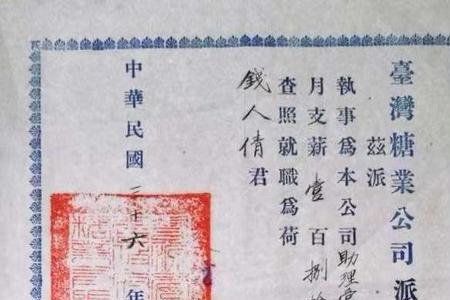 臺灣糖業公司派
茲派
執事爲本公司助理
月支薪壹百捌
查照就職爲荷
錢人倩君
中華民國三十六年